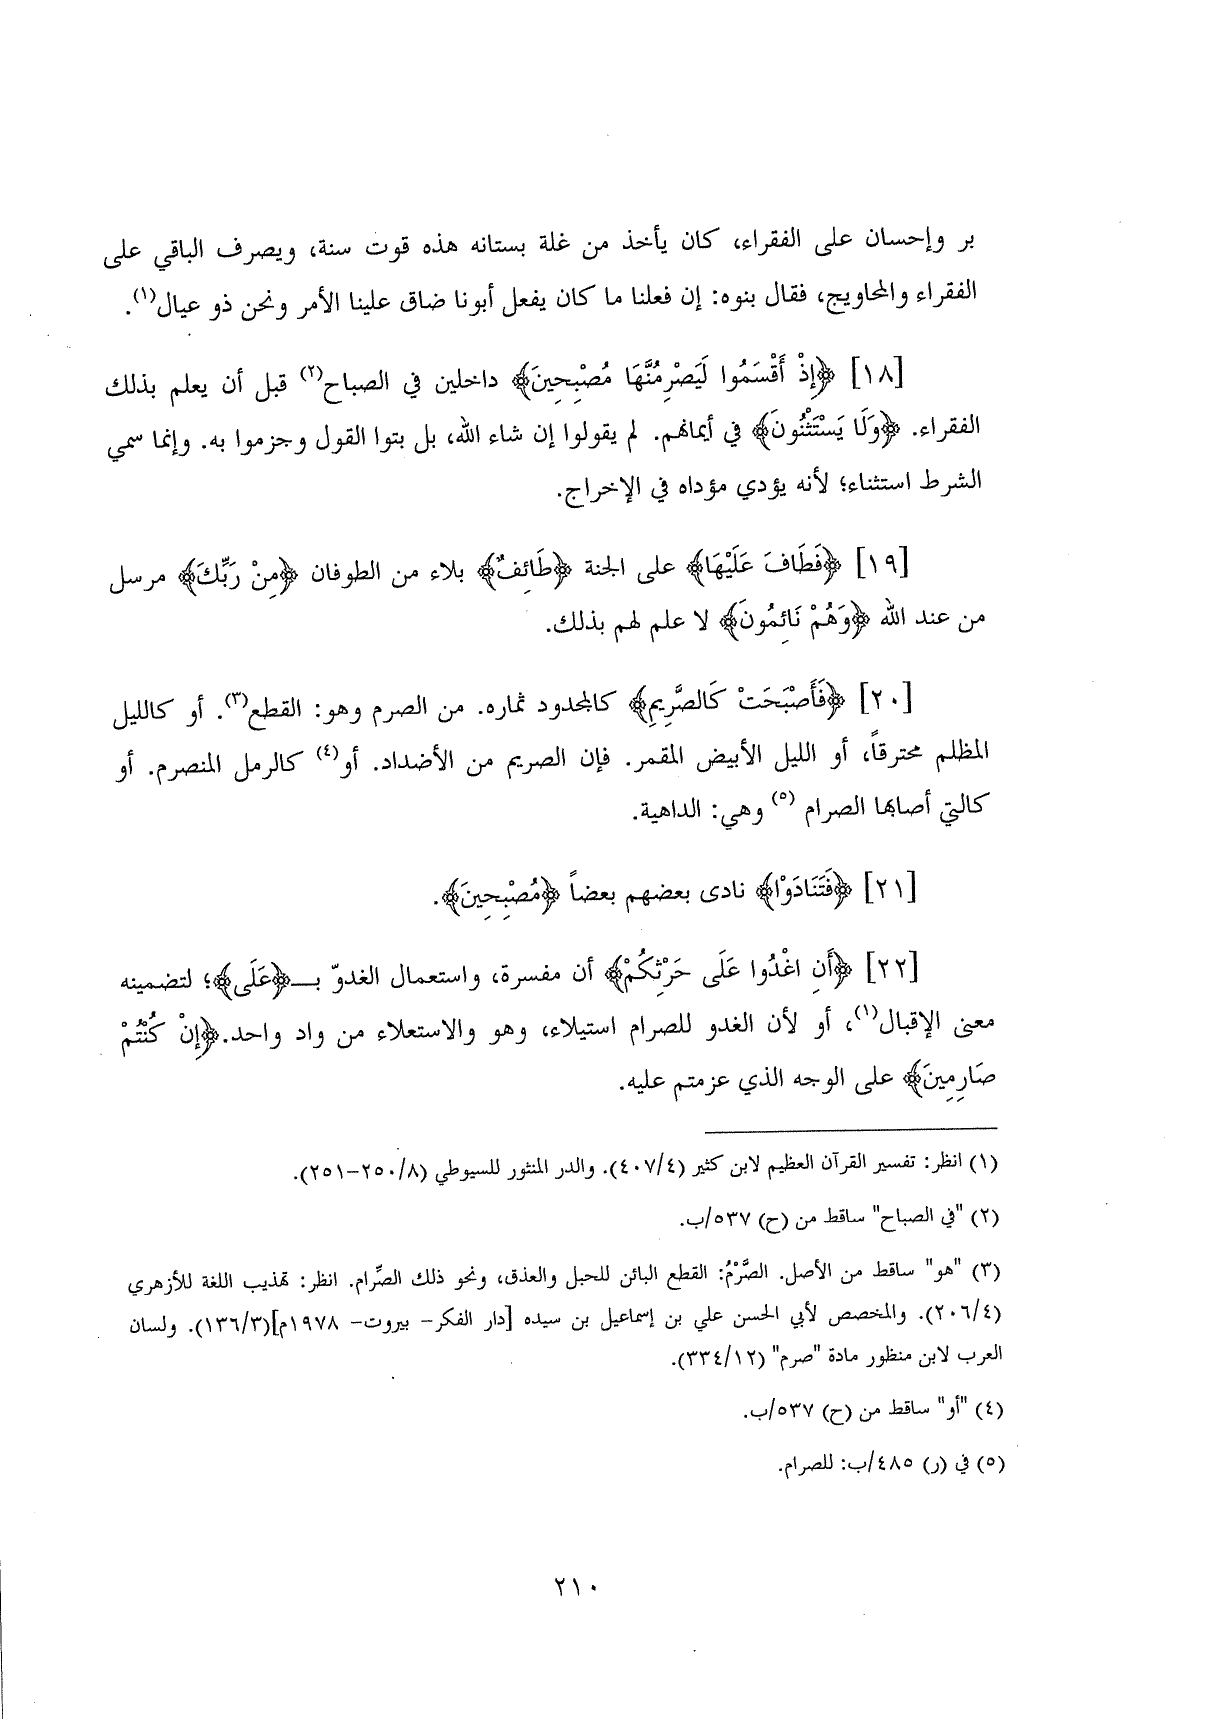 بر وإحسان على الفقراء، كان يأخذ من غلة بستانه هذه قوت سنة، ويصرف الباقي على
الفقراء والمحاويج، فقال بنوه: إن فعلنا ما كان يفعل أبونا ضاق علينا الأمر ونحن ذو عيال(١).
[١٨] ﴿إِذْ أَقْسَمُوا لَيَصْرِمُنَّهَا مُصْبِحِينَ﴾ داخلين في الصباح(٢) قبل أن يعلم بذلك
الفقراء. ﴿وَلَا يَسْتَثْنُونَ﴾ في أيمانهم. لم يقولوا إن شاء الله، بل بتوا القول وجزموا به. وإنما سمي
الشرط استثناء؛ لأنه يؤدي مؤداه في الإخراج.
[١٩] ﴿فَطَافَ عَلَيْهَا﴾ على الجنة ﴿طَائِفٌ﴾ بلاء من الطوفان ﴿مِنْ رَبِّكَ﴾ مرسل
من عند الله ﴿وَهُمْ نَائِمُونَ﴾ لا علم لهم بذلك.
[٢٠] ﴿فَأَصْبَحَتْ كَالصَّرِيمِ﴾ كالمجدود ثماره. من الصرم وهو: القطع(٣). أو كالليل
المظلم محترقاً، أو الليل الأبيض المقمر. فإن الصريم من الأضداد. أو(٤) كالرمل المنصرم. أو
كالتي أصابها الصرام (٥) وهي: الداهية.
[٢١] ﴿فَتَنَادَوْا﴾ نادى بعضهم بعضاً ﴿مُصْبِحِينَ﴾.
[٢٢] ﴿أَنِ اغْدُوا عَلَى حَرْثِكُمْ﴾ أن مفسرة، واستعمال الغدوّ بــ﴿عَلَى﴾؛ لتضمينه
معنى الإقبال(١)، أو لأن الغدو للصرام استيلاء، وهو والاستعلاء من واد واحد.﴿إِنْ كُنْتُمْ
صَارِمِينَ﴾ على الوجه الذي عزمتم عليه.
(١) انظر: تفسير القرآن العظيم لابن كثير (٤٠٧/٤). والدر المنثور للسيوطي (٢٥٠/٨-٢٥١).
(٢) "في الصباح" ساقط من (ح) ٥٣٧/ب.
(٣) "هو" ساقط من الأصل. الصَّرْمُ: القطع البائن للحبل والعذق، ونحو ذلك الصِّرام. انظر: تهذيب اللغة للأزهري
(٢٠٦/٤). والمخصص لأبي الحسن علي بن إسماعيل بن سيده [دار الفكر- بيروت- ١٩٧٨م](١٣٦/٣). ولسان
العرب لابن منظور مادة "صرم" (٣٣٤/١٢).
(٤) "أو" ساقط من (ح) ٥٣٧/ب.
(٥) في (ر) ٤٨٥/ب: للصرام.
٢١٠